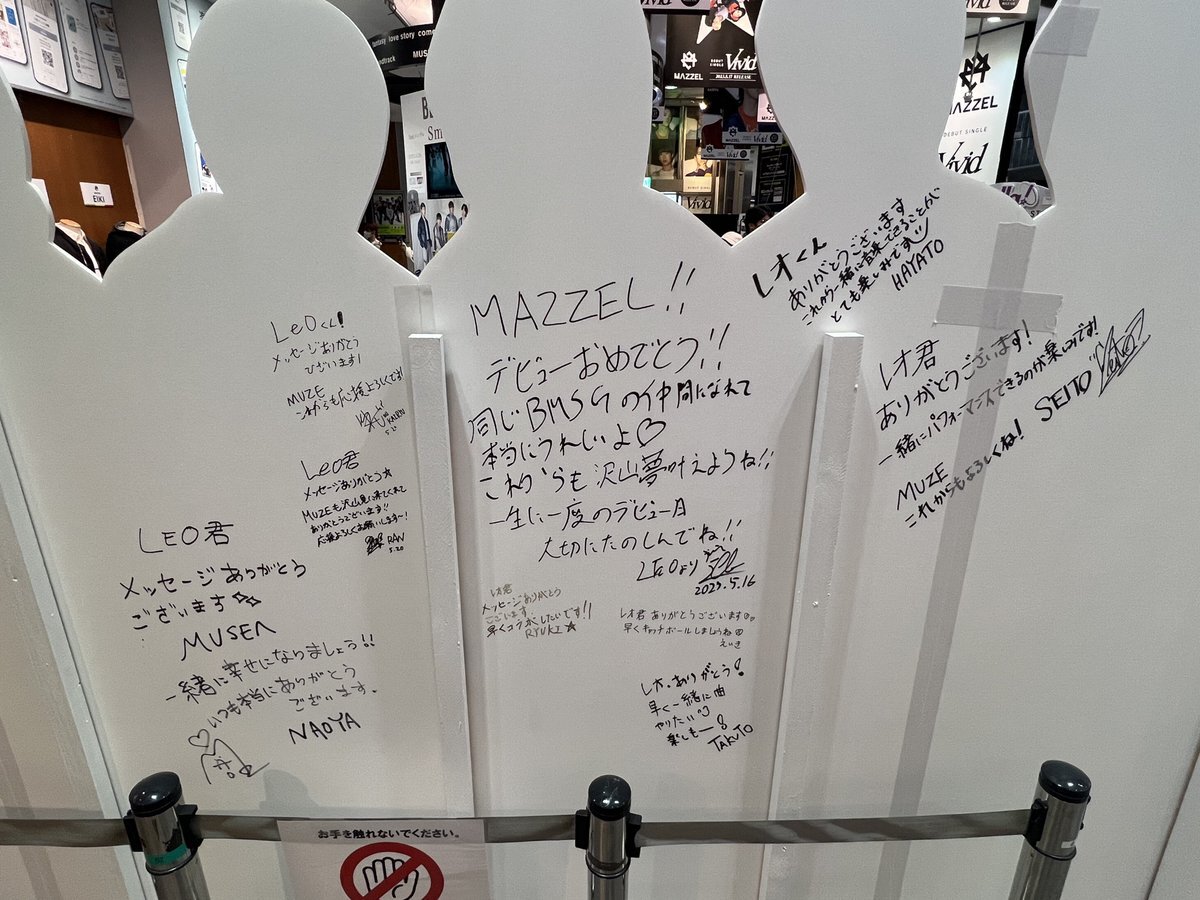 fantasy love story
MUS
MAZZEL
DEBUT SINGLE
Vivid
2023.5.17 RELEASE
MAZZEL
DEBUT SINGLE
Vivid
EIKI
MAZZEL!!
デビューおめでとう!!
同じBMSGの仲間になれて
本当にうれしいよ♡
これからも沢山夢叶えようね!!
一生に一度のデビュー日
大切にたのしんでね!!
LEOより
2023.5.16
LEOくん!
メッセージありがとう
ございます!
MUZE
これからも応援よろしくです!
KAIRYU
5.21
LEO君
メッセージありがとう☆
MUZEも沢山見に来てくれて
ありがとうございます!!
応援よろしくお願いします〜!
RAN
5.20
LEO君
メッセージありがとう
ございます
MUSEへ
一緒に幸せになりましょう!!
いつも本当にありがとう
ございます.
NAOYA
レオ君
メッセージありがとう
ございます
早くコラボしたいです!!
RYUKI★
レオ君ありがとうございます
早くキャッチボールしましょうね
えいき
レオ、ありがとう!
早く一緒に曲
やりたい
楽しもー!
TAKUTO
レオくん
ありがとうございます
これから一緒に音楽できることが
とても楽しみです
HAYATO
レオ君
ありがとうございます!
一緒にパフォーマンスできるのが楽しみです!
SEITO
MUZE
これからもよろしくね!
お手を触れないでください。